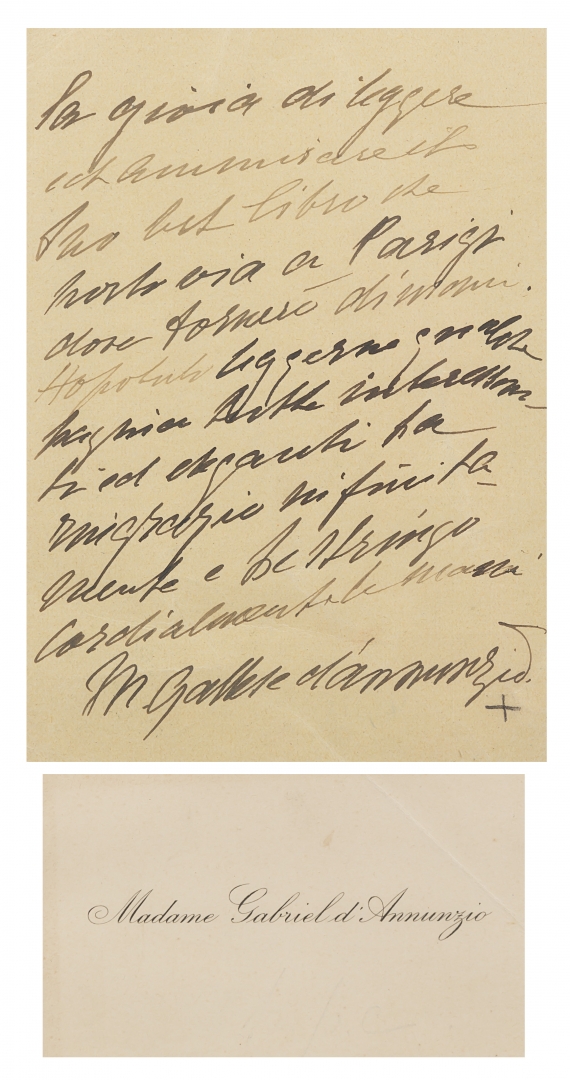 la gioia di leggere
ed ammirare il
Suo bel libro che
porto via a Parigi
dove tornerò dimani.
Ho potuto leggerne qualche
pagina tutte interessan-
ti ed eleganti La
ringrazio infinita-
mente e Le stringo
Cordialmente le mani
M Gallese d'Annunzio.
+
Madame Gabriel d'Annunzio